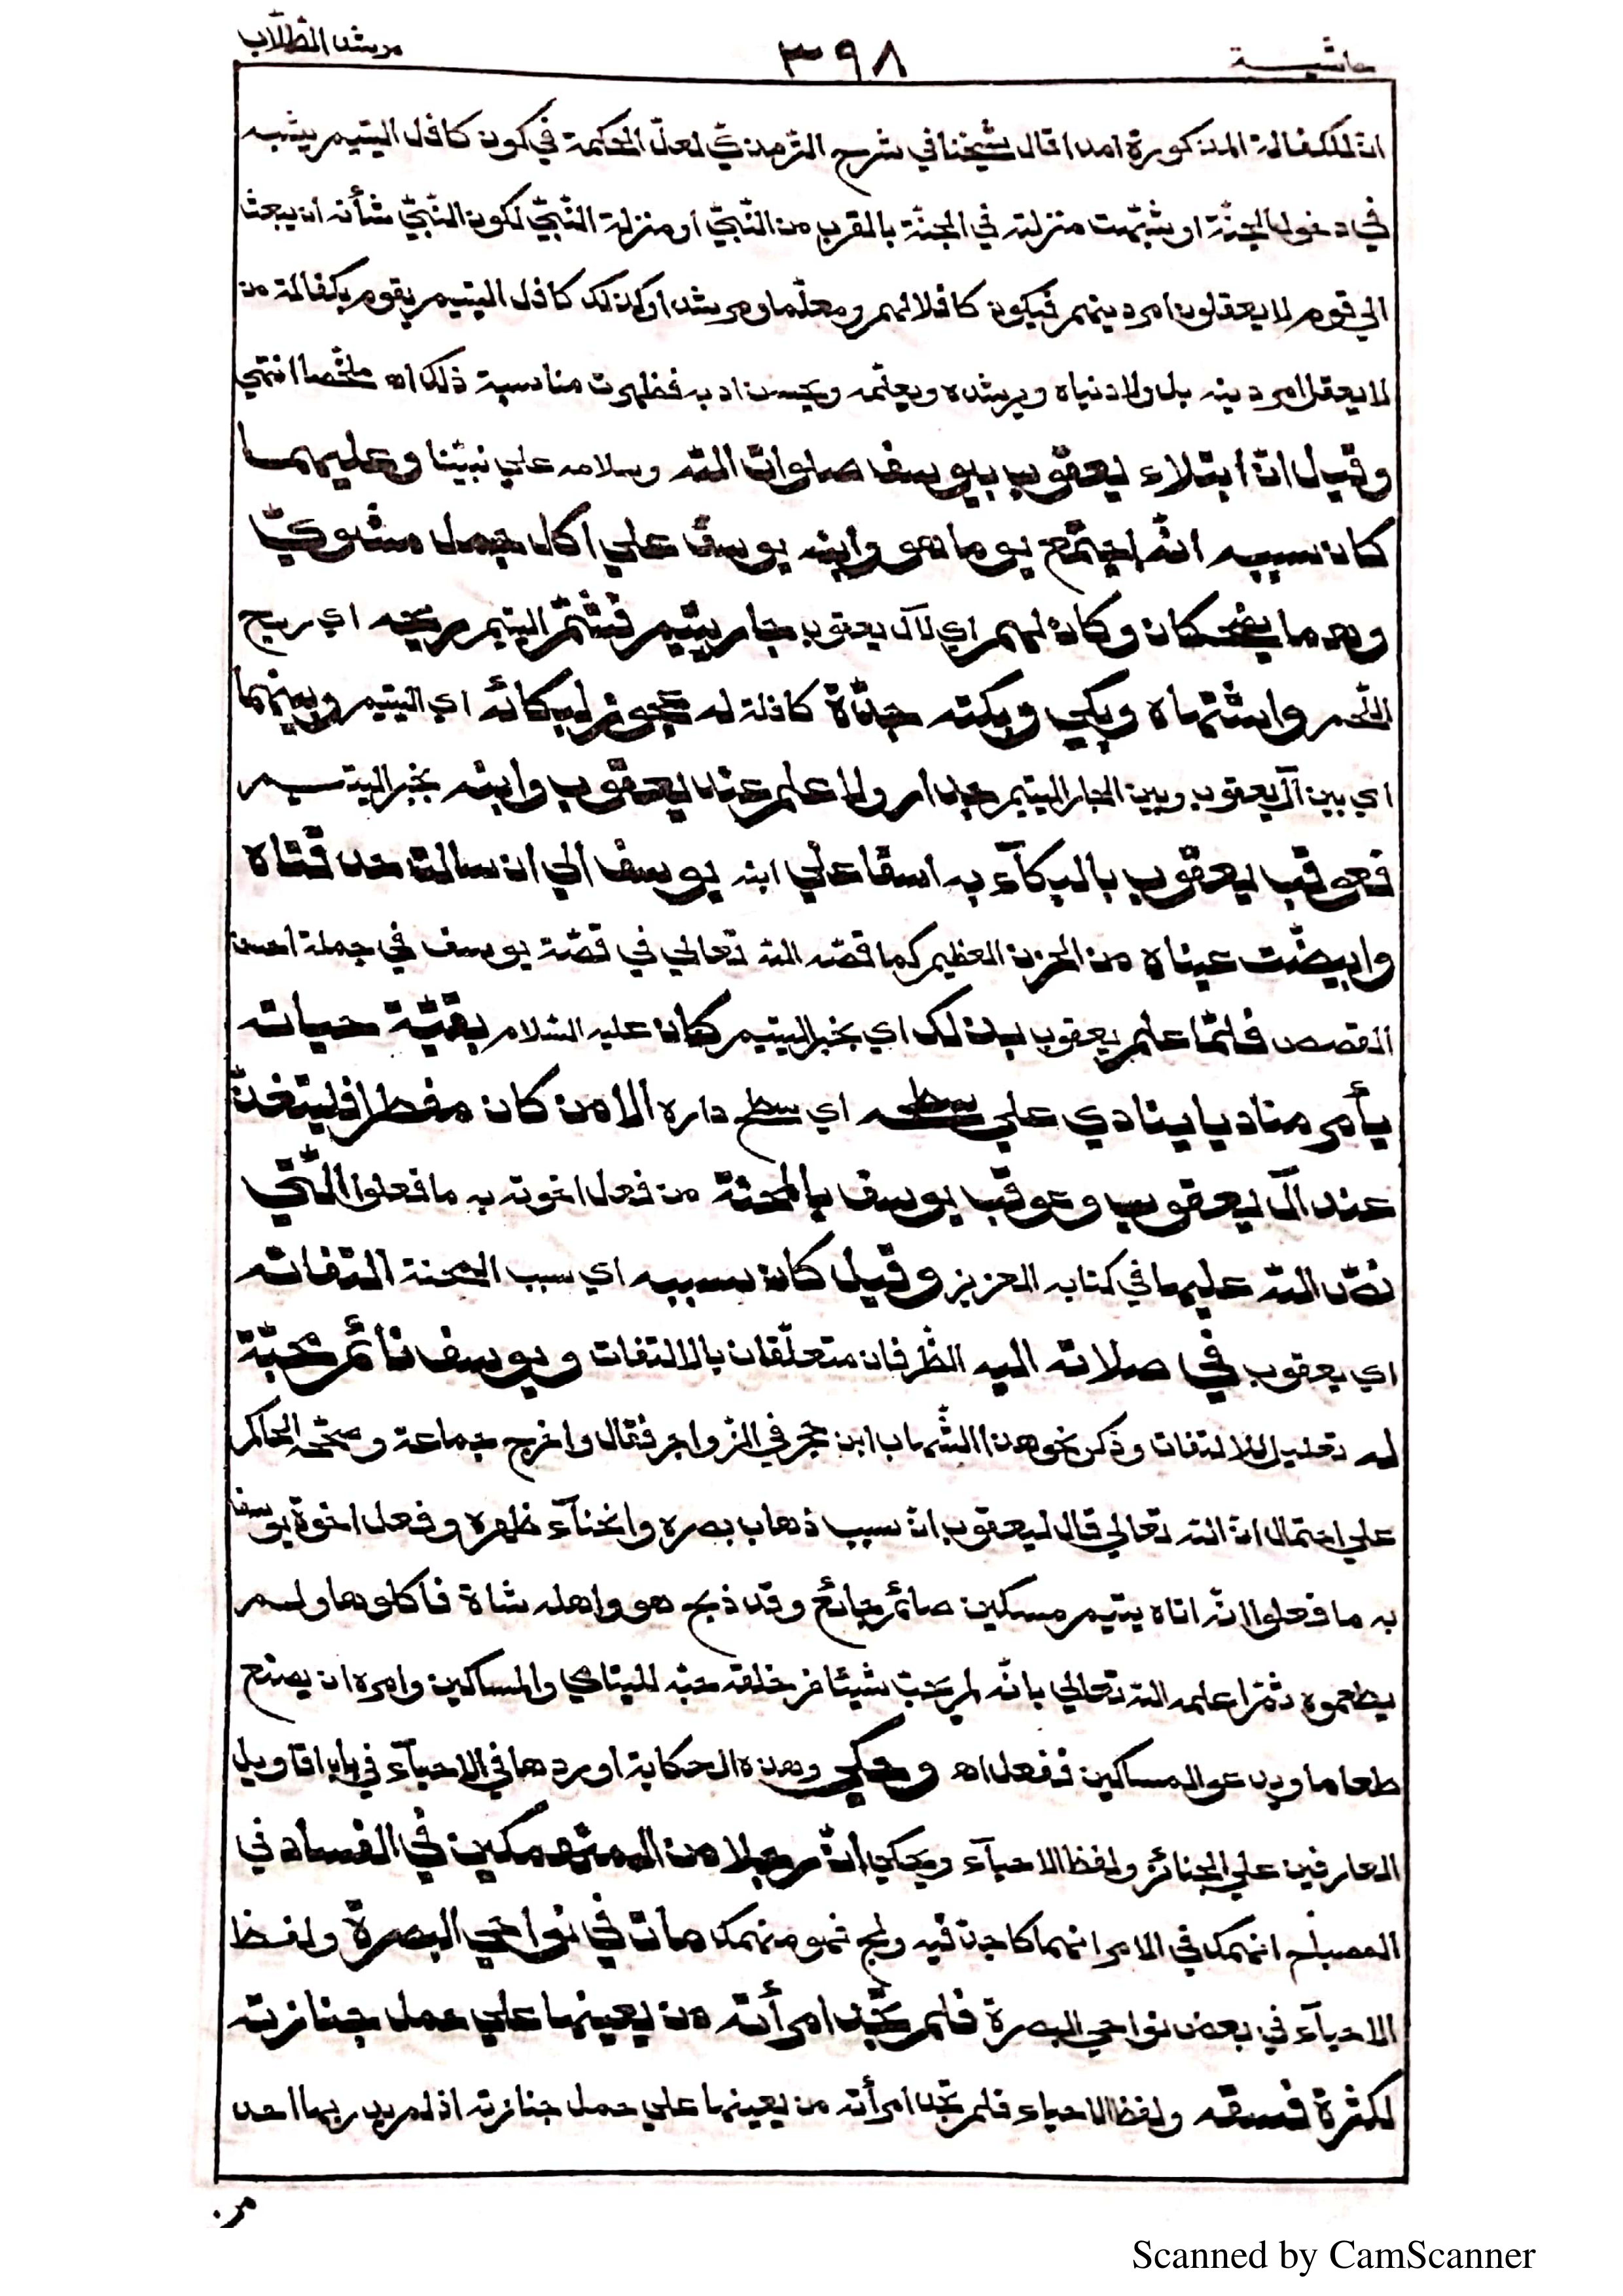 حاشية ٣٩٨ مرشد الطلّاب
انّ للكفالة المذكورة امدا قال شيخنا في شرح الترمذيّ لعلّ الحكمة في كون كافل اليتيم يشبه
في دخول الجنّة او شبّهت منزلته في الجنّة بالقرب من النّبيّ او منزلة النّبيّ لكون النّبيّ شأنه ان يبعث
الي قوم لا يعقلون امر دينهم فيكون كافلا لهم ومعلّما ومرشدا وكذلك كافل اليتيم يقوم بكفالة من
لا يعقل امر دينه بل ولا دنياه ويرشده ويعلّمه ويحسن ادبه فظهرت مناسبة ذلك اه ملخّصا انتهي
وقيل انّ ابتلاء يعقوب بيوسف صلوات الله وسلامه علي نبيّنا وعليهما
كان سببه انّه اجتمع يوما هو وابنه يوسف علي اكل حمل مشويّ
وهما يضحكان وكان لهم اي لآل يعقوب جار يتيم فشمّ اليتيم ريحه اي ريح
اللّحم واشتهاه وبكي وبكته جدّة كافلة له عجوز لبكائه اي اليتيم وبينهما
اي بين آل يعقوب وبين الجار اليتيم جدار ولا علم عند يعقوب وابنه بخبر اليتيم
فعوقب يعقوب بالبكآء به اسفا علي ابنه يوسف الي ان سالت حدقتاه
وابيضّت عيناه من الحزن العظيم كما قصّه الله تعالي في قصّة يوسف في جملة احسن
القصص فلمّا علم يعقوب بذلك اي بخبر اليتيم كان عليه السّلام بقيّة حياته
يأمر مناديا ينادي علي سطحه اي سطح داره الا من كان مفطرا فليتغدّ
عند آل يعقوب وعوقب يوسف بالمحنة من فعل اخوته به ما فعلوا الّتي
نصّ الله عليها في كتابه العزيز وقيل كان سببه اي سبب المحنة التفاته
اي يعقوب في صلاته اليه الظّرفان متعلّقان بالالتفات ويوسف نائم محبّة
له تعليل للالتفات وذكر نحو هذا الشّهاب ابن حجر في الزّواجر فقال واخرج جماعة وصحّحه الحاكم
علي احتمال انّ الله تعالي قال ليعقوب انّ سبب ذهاب بصره وانحنآء ظهره وفعل اخوة يوسف
به ما فعلوا انّه اتاه يتيم مسكين صائم جائع وقد ذبح هو واهله شاة فاكلوها ولم
يطعموه ثمّ اعلمه الله تعالي بانّه لم يحبّ شيئا من خلقه حبّه لليتامي والمساكين وامره ان يصنع
طعاما ويدعو المساكين ففعل اه وحكي وهذه الحكاية اوردها في الاحيآء في باب اقاويل
العارفين علي الجنائز ولفظ الاحيآء ويحكي انّ رجلا من المنهمكين في الفساد في
المصباح انهمك في الامر انهماكا جدّ فيه ولجّ فهو منهمك مات في نواحي البصرة ولفظ
الاحيآء في بعض نواحي البصرة فلم تجد امرأته من يعينها علي حمل جنازته
لكثرة فسقه ولفظ الاحياء فلم تجد امرأته من يعينها علي حمل جنازته اذ لم يدر بها احد
من
Scanned by CamScanner